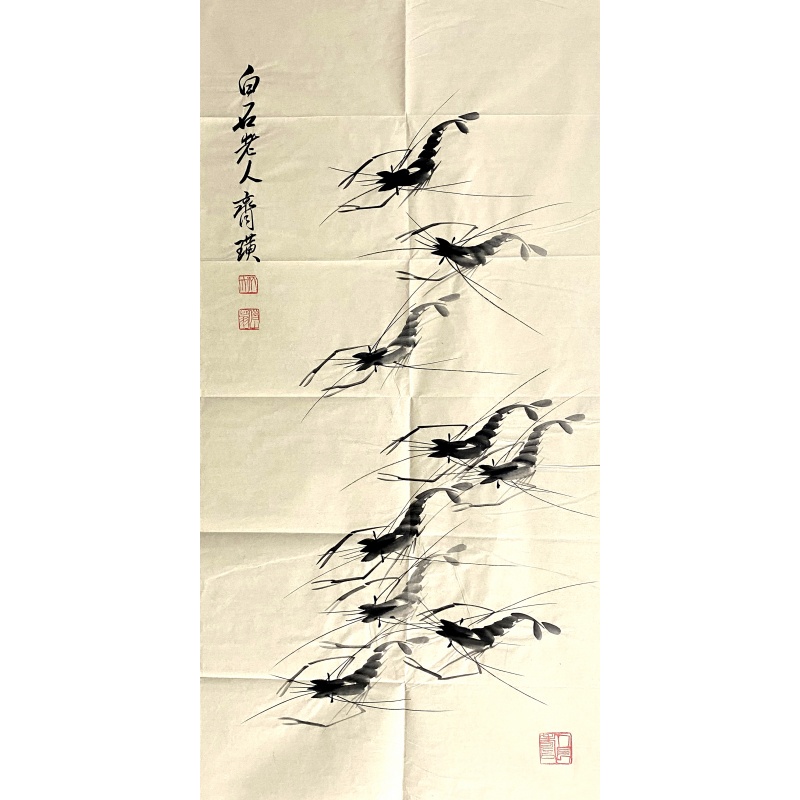 白石老人齊璜